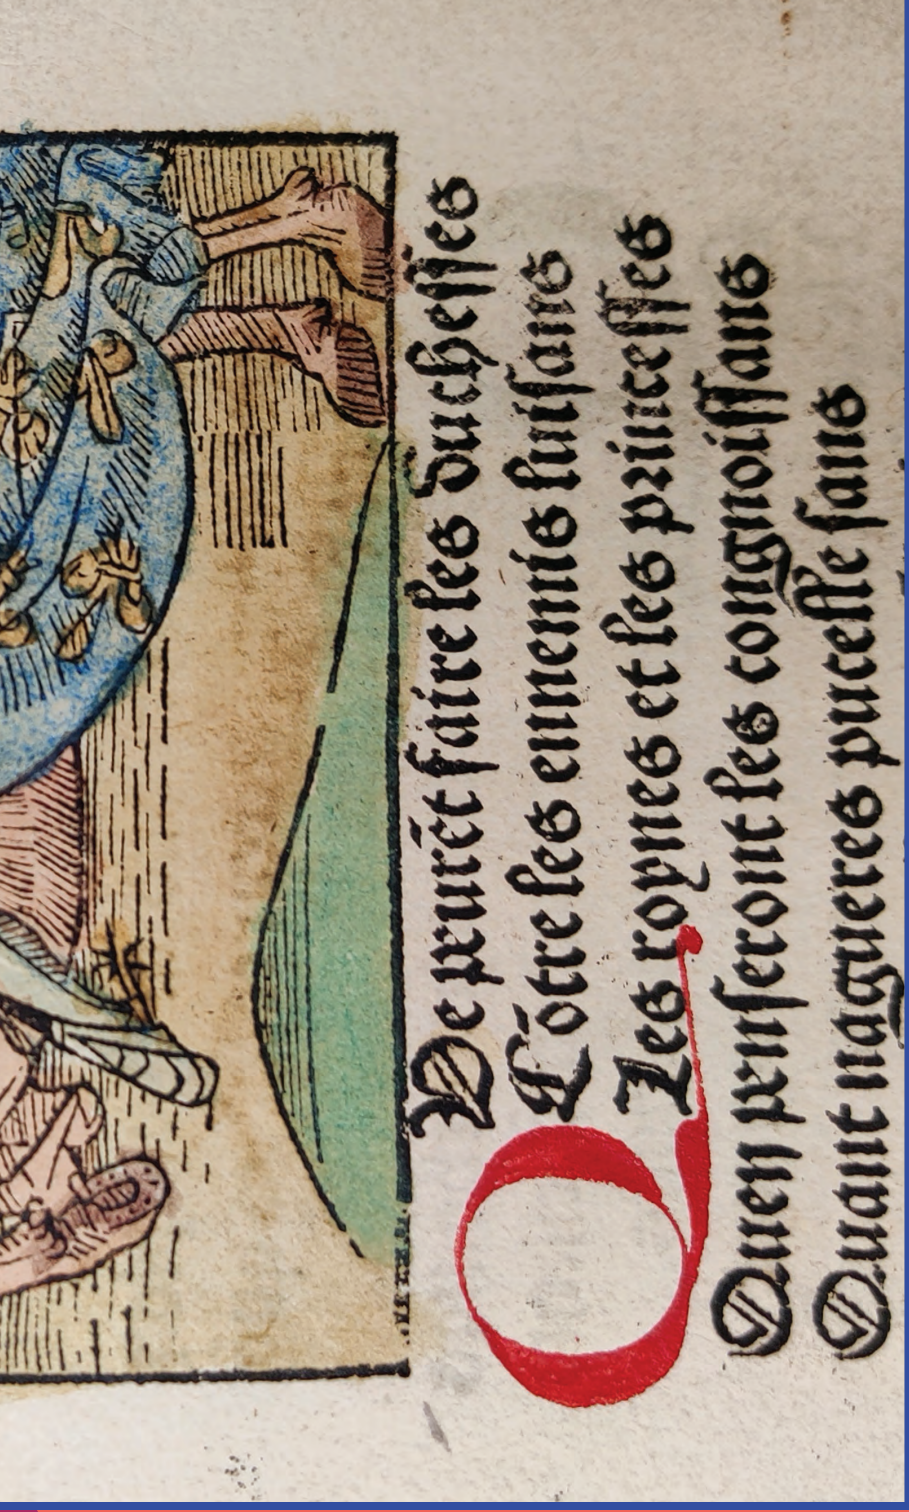 QVe peurēt faire les duchesses
Cōtre les ennemis luisans
Les roynes et les princesses
Quen penseront les congnoissans
Quant nagueres pucelle sans